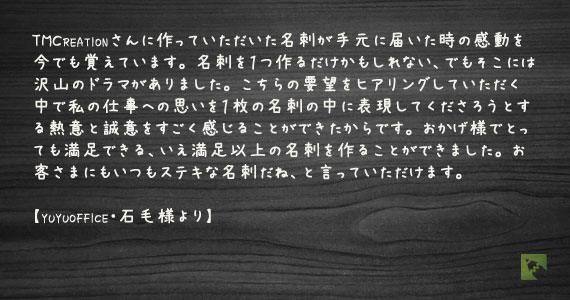 TMCreationさんに作っていただいた名刺が手元に届いた時の感動を
今でも覚えています。名刺を1つ作るだけかもしれない、でもそこには
沢山のドラマがありました。こちらの要望をヒアリングしていただく
中で私の仕事への思いを1枚の名刺の中に表現してくださろうとす
る熱意と誠意をすごく感じることができたからです。おかげ様でとっ
ても満足できる、いえ満足以上の名刺を作ることができました。お
客さまにもいつもステキな名刺だね、と言っていただけます。
【YuYuOFFICE・石毛様より】